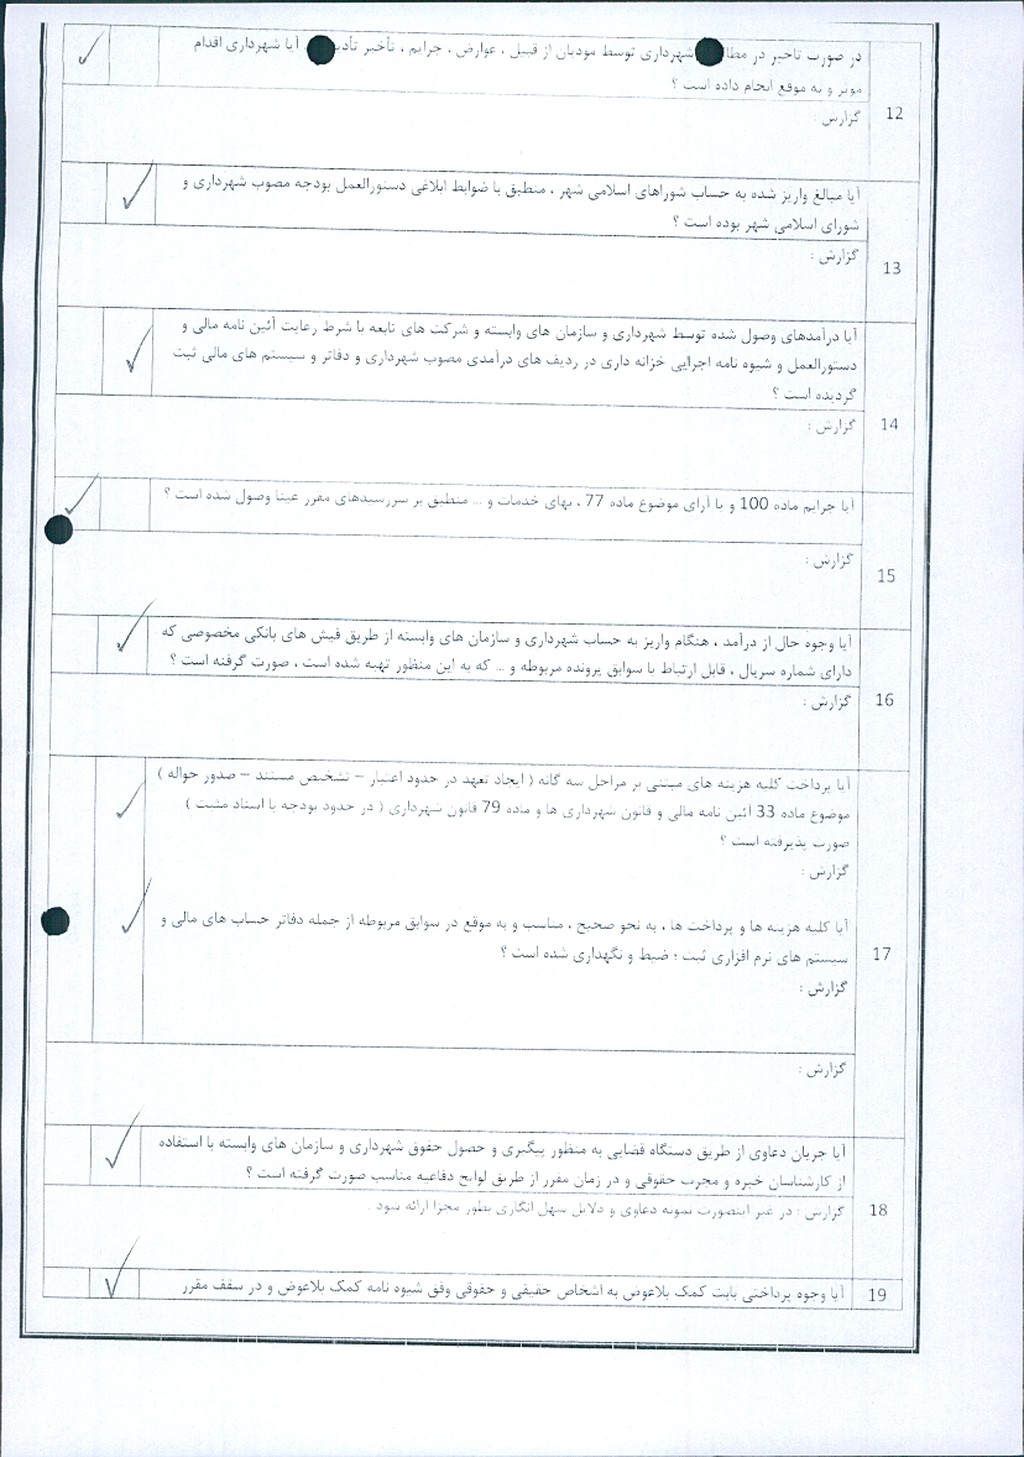 در صورت تاخیر در شهرداری توسط مودیان از قبیل ، عوارض ، جرایم ، تأخیر آیا شهرداری اقدام
موثر و به موقع انجام داده است ؟
12
گزارش :
آیا مبالغ واریز شده به حساب شوراهای اسلامی شهر ، منطبق با ضوابط ابلاغی دستورالعمل بودجه مصوب شهرداری و
شورای اسلامی شهر بوده است ؟
گزارش :
13
آیا درآمدهای وصول شده توسط شهرداری و سازمان های وابسته و شرکت های تابعه با شرط رعایت آئین نامه مالی و
دستورالعمل و شیوه نامه اجرایی خزانه داری در ردیف های درآمدی مصوب شهرداری و دفاتر و سیستم های مالی ثبت
گردیده است ؟
14
گزارش :
آیا جرایم ماده 100 و یا آرای موضوع ماده 77 ، بهای خدمات و ... منطبق بر سررسیدهای مقرر عینا وصول شده است ؟
گزارش :
15
آیا وجوه حال از درآمد ، هنگام واریز به حساب شهرداری و سازمان های وابسته از طریق فیش های بانکی مخصوصی که
دارای شماره سریال ، قابل ارتباط با سوابق پرونده مربوطه و ... که به این منظور تهیه شده است ، صورت گرفته است ؟
16
گزارش :
آیا پرداخت کلیه هزینه های مبتنی بر مراحل سه گانه ( ایجاد تعهد در حدود اعتبار – تشخیص مستند – صدور حواله )
موضوع ماده 33 آئین نامه مالی و قانون شهرداری ها و ماده 79 قانون شهرداری ( در حدود بودجه با اسناد مثبت )
صورت پذیرفته است ؟
گزارش :
آیا کلیه هزینه ها و پرداخت ها ، به نحو صحیح ، مناسب و به موقع در سوابق مربوطه از جمله دفاتر حساب های مالی و
17
سیستم های نرم افزاری ثبت ؛ ضبط و نگهداری شده است ؟
گزارش :
گزارش :
آیا جریان دعاوی از طریق دستگاه قضایی به منظور پیگیری و حصول حقوق شهرداری و سازمان های وابسته با استفاده
از کارشناسان خبره و مجرب حقوقی و در زمان مقرر از طریق لوایح دفاعیه مناسب صورت گرفته است ؟
18
گزارش : در غیر اینصورت نمونه دعاوی و دلایل سهل انگاری بطور مجزا ارائه شود .
19
آیا وجوه پرداختی بابت کمک بلاعوض به اشخاص حقیقی و حقوقی وفق شیوه نامه کمک بلاعوض و در سقف مقرر